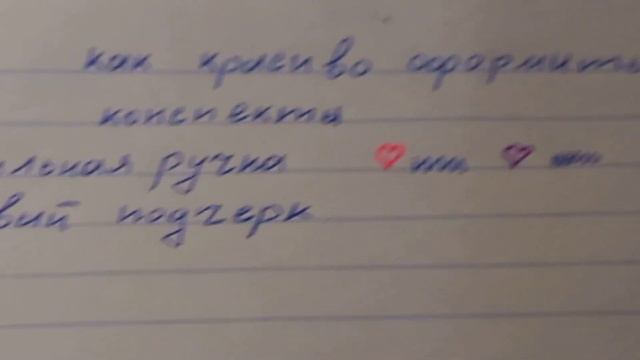 как красиво оформить
конспекта
льная ручка
вий подчерк